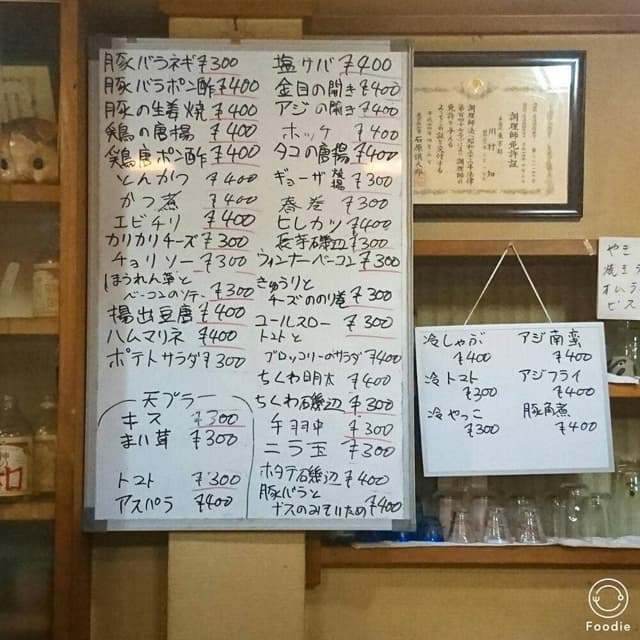 豚バラネギ ¥300
豚バラポン酢 ¥400
豚の生姜焼 ¥400
鶏の唐揚 ¥400
鶏唐ポン酢 ¥400
とんかつ ¥400
かつ煮 ¥400
エビチリ ¥400
カリカリチーズ ¥300
チョリソー ¥300
ほうれん草と
ベーコンのソテー ¥300
揚出豆腐 ¥400
ハムマリネ ¥400
ポテトサラダ ¥300
天プラ
キス ¥300
まい茸 ¥300
トマト ¥300
アスパラ ¥400
塩サバ ¥400
金目の開き ¥400
アジの開き ¥400
ホッケ ¥400
タコの唐揚 ¥400
ギョーザ ¥300
春巻 ¥300
ヒレカツ ¥400
長芋磯辺 ¥300
ウィンナーベーコン ¥300
きゅうりと
チーズののり巻 ¥300
コールスロー ¥300
トマトと
ブロッコリーのサラダ ¥400
ちくわ明太 ¥400
ちくわ磯辺 ¥300
¥300
ニラ玉 ¥300
ホタテ磯辺 ¥400
豚バラと
ナスのみそいため ¥400
調理師免許証
冷しゃぶ
¥400
冷トマト
¥300
冷やっこ
¥300
アジ南蛮
¥400
アジフライ
¥400
豚角煮
¥400
Foodie